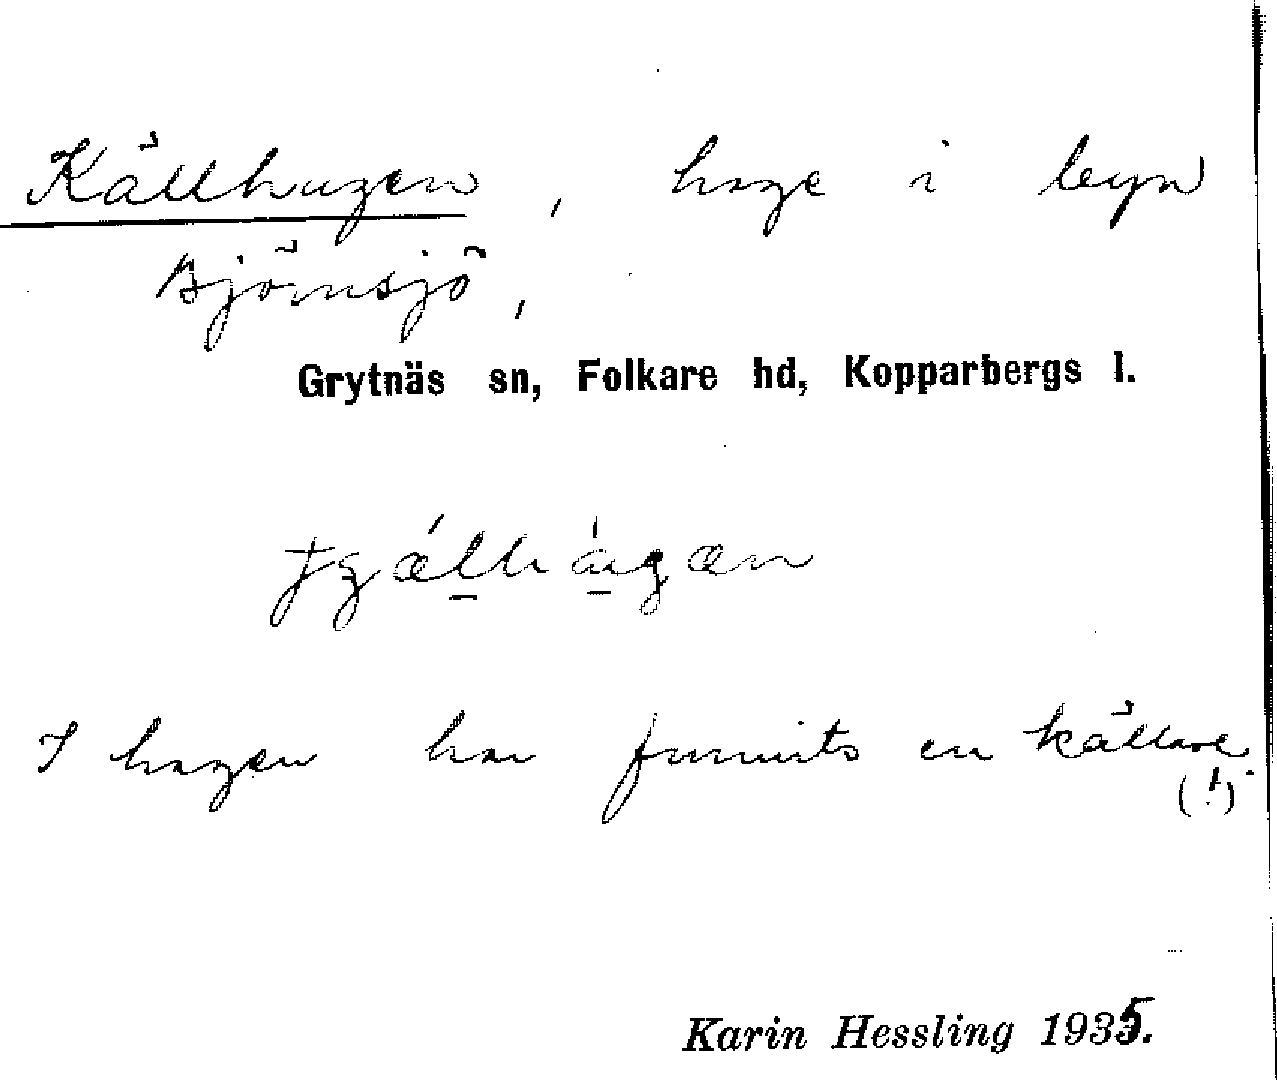 Källhagen, hage i byn
Björnsjö,
Grytnäs sn, Folkare hd, Kopparbergs l.
I hagen har funnits en källare
(!).
Karin Hessling 1935.